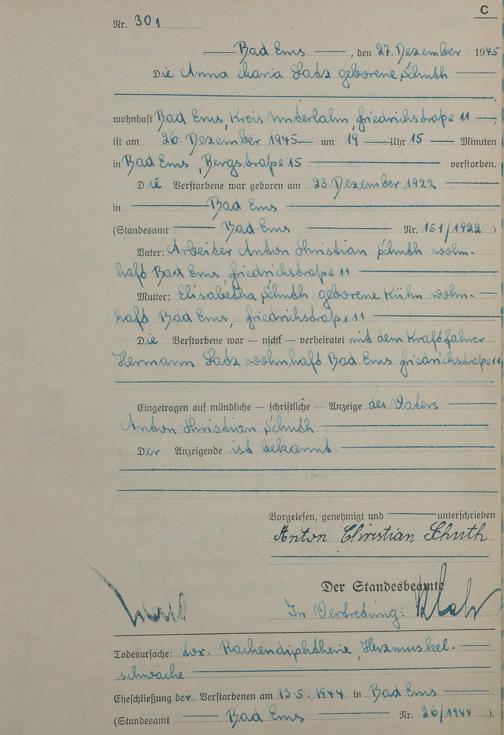 C
Nr. 301
Bad Ems, den 27. Dezember 1945
Die Anna Maria Satz geborene Schuth
wohnhaft Bad Ems, Kreis Unterlahn, Friedrichstraße 11
ist am 26. Dezember 1945 um 19 Uhr 15 Minuten
in Bad Ems, Bergstraße 15 verstorben.
Die Verstorbene war geboren am 23. Dezember 1922
in Bad Ems
(Standesamt Bad Ems Nr. 151/1922)
Vater: Arbeiter Anton Christian Schuth wohn-
haft Bad Ems, Friedrichstraße 11
Mutter: Elisabetha Schuth geborene Kühn wohn-
haft Bad Ems, Friedrichstraße 11
Die Verstorbene war — nicht — verheiratet mit dem Kraftfahrer
Hermann Satz wohnhaft Bad Ems Friedrichstraße 11
Eingetragen auf mündliche — schriftliche — Anzeige des Vaters
Anton Christian Schuth
Der Anzeigende ist bekannt.
Vorgelesen, genehmigt und unterschrieben
Anton Christian Schuth
Der Standesbeamte
In Vertretung:
Todesursache: tox. Rachendiphtherie, Herzmuskel-
schwäche
Eheschließung der Verstorbenen am 13.5.1944 in Bad Ems
(Standesamt Bad Ems Nr. 26/1944).